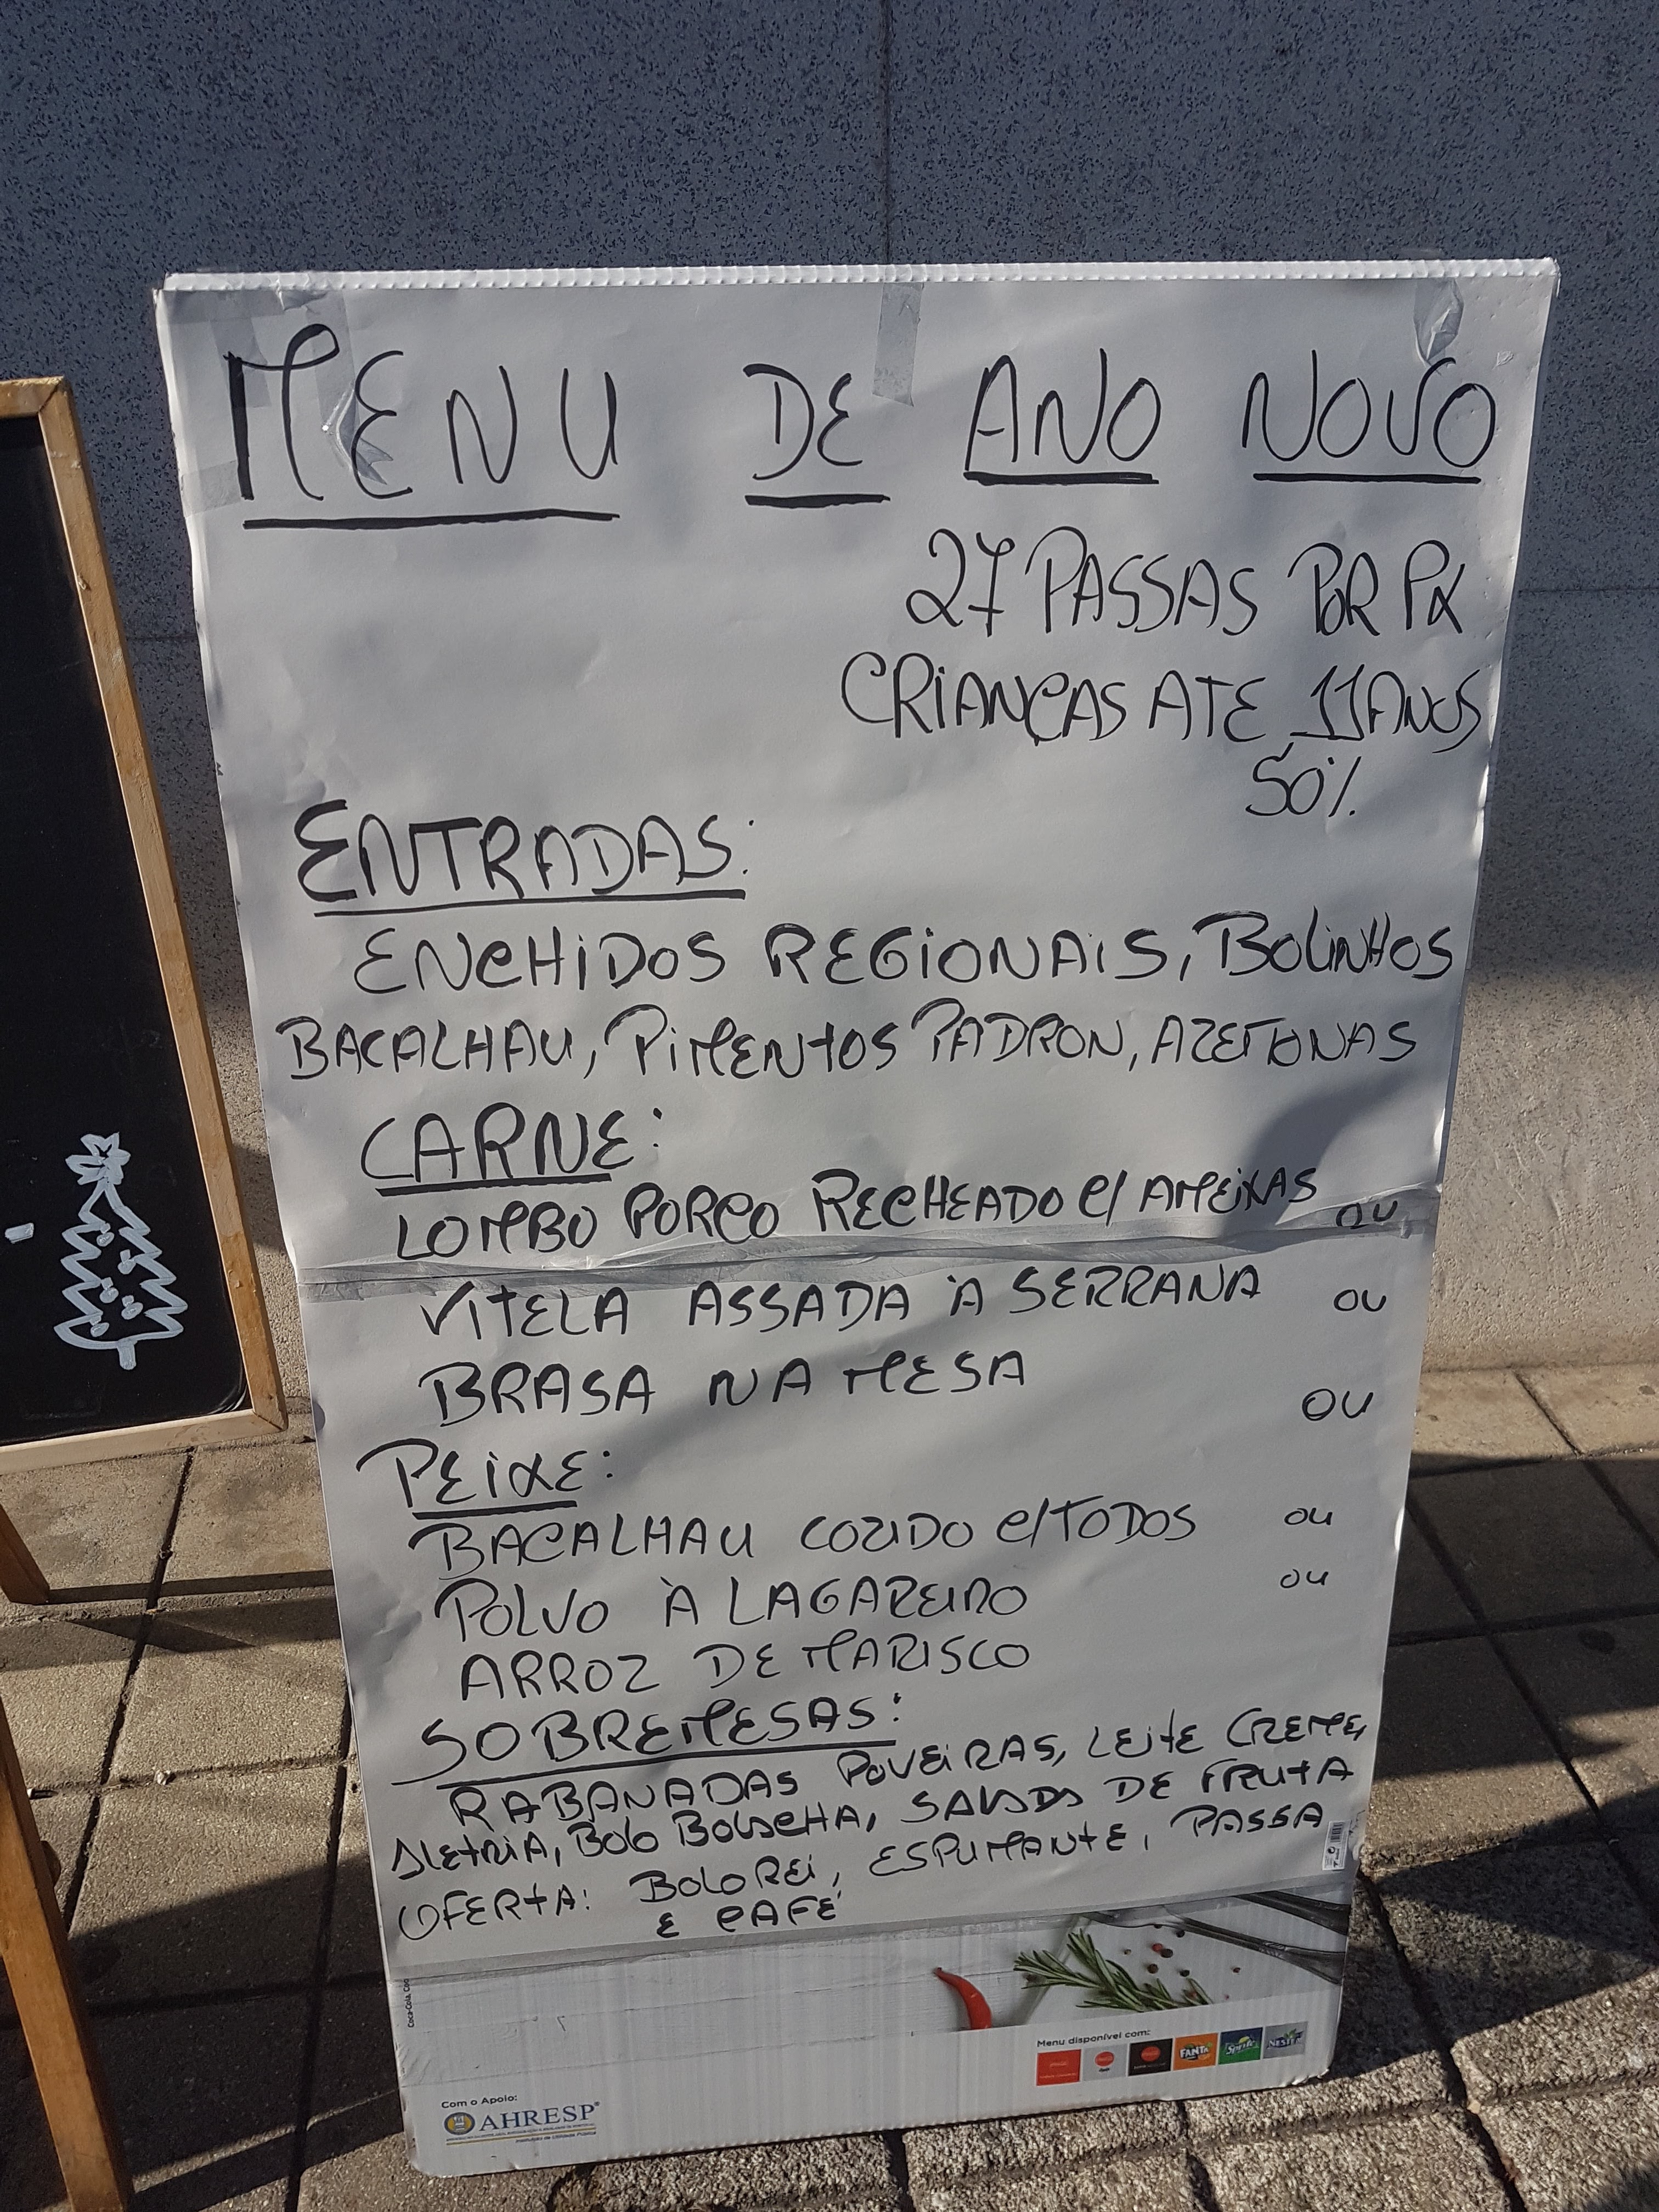 MENU DE ANO NOVO
27 PASSAS POR PX
CRIANÇAS ATE 11 ANOS
50%
ENTRADAS:
ENCHIDOS REGIONAIS, BOLINHOS
BACALHAU, PIMENTOS PADRON, AZEITONAS
CARNE:
LOMBO PORCO RECHEADO C/ AMEIXAS OU
VITELA ASSADA À SERRANA OU
BRASA NA MESA
OU
PEIXE:
BACALHAU COZIDO C/TODOS OU
POLVO À LAGAREIRO OU
ARROZ DE MARISCO
SOBREMESAS:
RABANADAS POVEIRAS, LEITE CREME,
ALETRIA, BOLO BOLACHA, SALADA DE FRUTA
OFERTA: BOLO REI, ESPUMANTE, PASSA
E CAFÉ
Menu disponível com:
FANTA Sprite NESTEA
Com o Apoio:
AHRESP